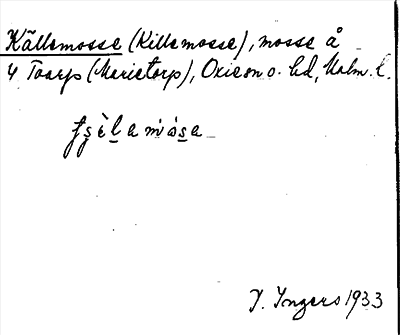 Källemosse (Killemosse), mosse å
4 Toarp (Marietorp), Oxie sn o. hd, Malm. l.
I. Ingers 1933